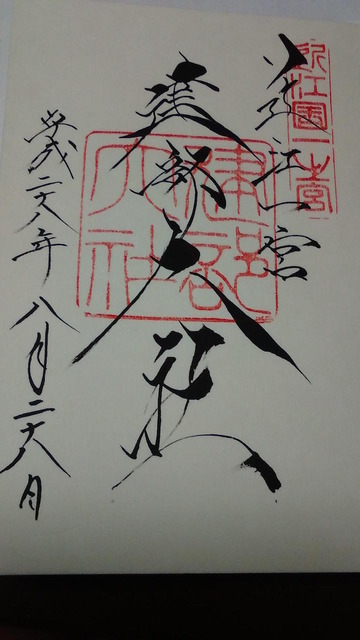 近江一宮
近江國一之宮
建部大社
建部大社
平成二十八年八月二十八日